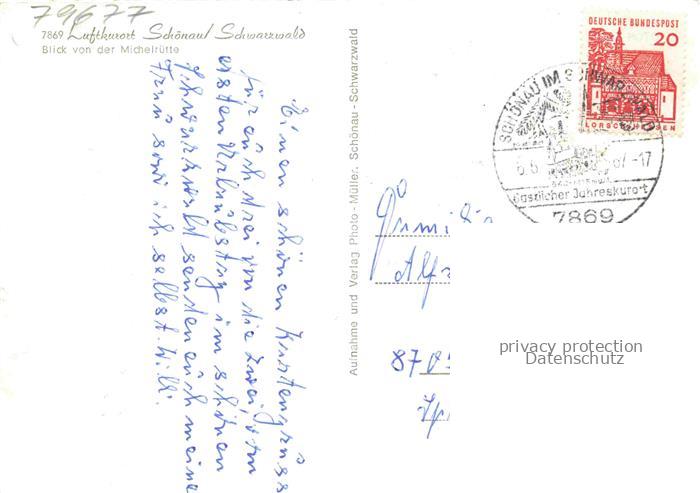 79677
7869 Luftkurort Schönau/Schwarzwald
Blick von der Michelrütte
Einen schönen Kartengruss
für auch drei von die Zwei, vom
ersten Urlaubstag im schönen
Schwarzwald senden auch meine
Frau sowie ich selbst. Willi.
Aufnahme und Verlag Photo-Müller, Schönau - Schwarzwald
DEUTSCHE BUNDESPOST
20
LORSCH/HESSEN
SCHÖNAU IM SCHWARZWALD
67-17
Gastlicher Jahreskurort
7869
Familie
Alf
870
privacy protection
Datenschutz